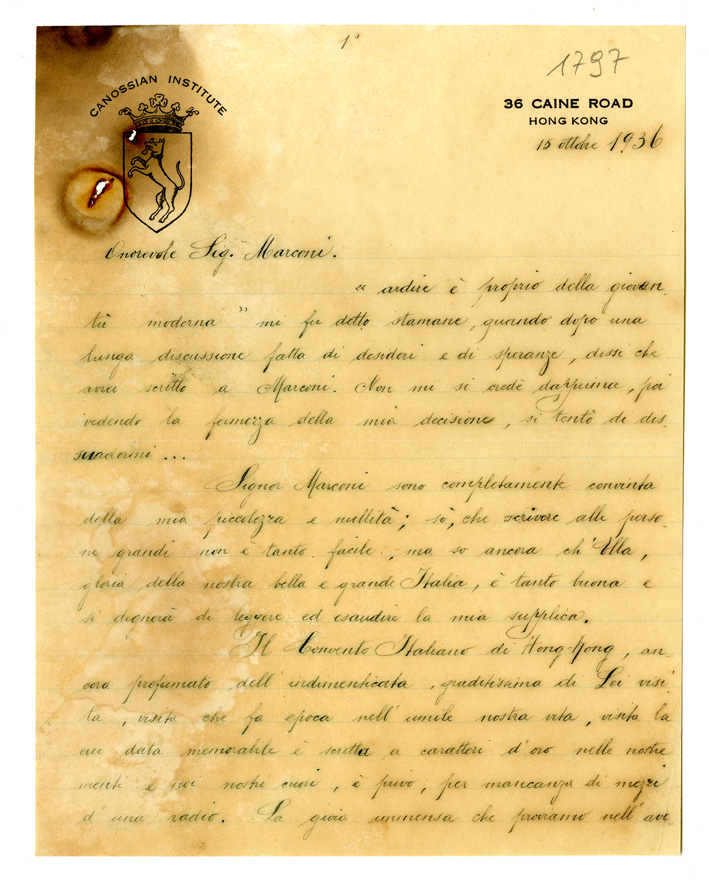 1º
1797
CANOSSIAN INSTITUTE
36 CAINE ROAD
HONG KONG
15 ottobre 1936
Onorevole Sig. Marconi.
" ardire è proprio della gioven-
tù moderna " mi fu detto stamane, quando dopo una
lunga discussione fatta di desideri e di speranze, dissi che
avrei scritto a Marconi. Non mi si credè dapprima, poi
vedendo la fermezza della mia decisione, si tentò di dis-
suadermi ...
Signor Marconi sono completamente convinta
della mia piccolezza e nullità; so, che scrivere alle perso-
ne grandi non è tanto facile; ma so ancora ch'Ella,
gloria della nostra bella e grande Italia, è tanto buona e
si degnerà di leggere ed esaudire la mia supplica.
Il Convento Italiano di Hong-Kong, an-
cora profumato dell'indimenticata, graditissima di Lei visi-
ta, visita che fa epoca nell'umile nostra vita, visita la
cui data memorabile è scritta a caratteri d'oro nelle nostre
menti e nei nostri cuori, è privo, per mancanza di mezzi
d'una radio. La gioia immensa che proviamo nell'ave-